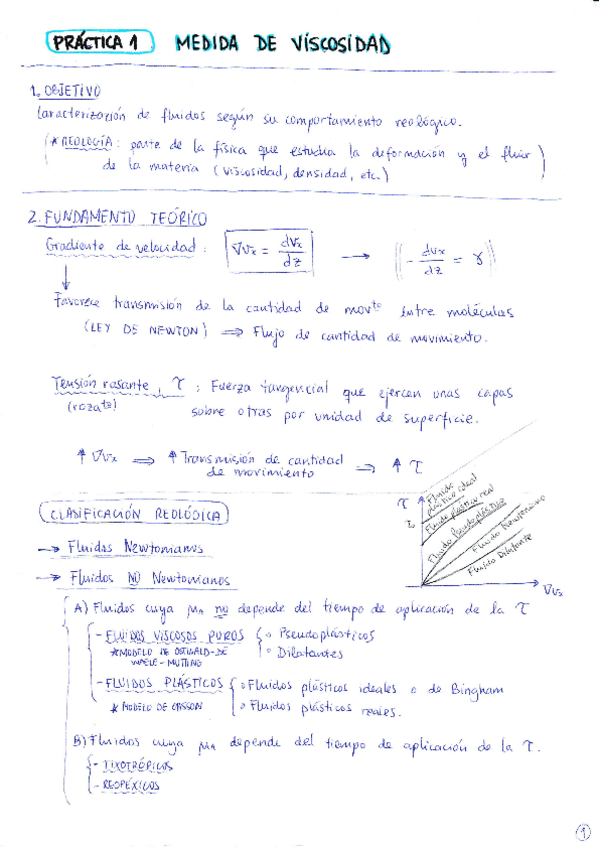 PRÁCTICA 1 MEDIDA DE VISCOSIDAD
1. OBJETIVO
Caracterización de fluidos según su comportamiento reológico.
(* REOLOGÍA: parte de la física que estudia la deformación y el fluir
de la materia (viscosidad, densidad, etc.))
2. FUNDAMENTO TEÓRICO
Gradiente de velocidad: ∇vx = dvx/dz → (- dvx/dz = γ)
↓
Favorece transmisión de la cantidad de movto entre moléculas
(LEY DE NEWTON) ⇒ Flujo de cantidad de movimiento.
Tensión rasante, τ: Fuerza tangencial que ejercen unas capas
(rozato) sobre otras por unidad de superficie.
↑ ∇vx ⇒ ↑ Transmisión de cantidad de movimiento ⇒ ↑ τ
τ
τ₀
Fluido plástico ideal
Fluido plástico real
Fluido Pseudoplástico
Fluido Newtoniano
Fluido Dilatante
∇vx
CLASIFICACIÓN REOLÓGICA
→ Fluidos Newtonianos
→ Fluidos NO Newtonianos
A) Fluidos cuya μa no depende del tiempo de aplicación de la τ
- FLUIDOS VISCOSOS PUROS
* MODELO DE OSTWALD-DE
WAELE-NUTTING
° Pseudoplásticos
° Dilatantes
- FLUIDOS PLÁSTICOS
* MODELO DE CASSON
° Fluidos plásticos ideales o de Bingham
° Fluidos plásticos reales.
B) Fluidos cuya μa depende del tiempo de aplicación de la τ.
- TIXOTRÓPICOS
- REOPÉXICOS
1